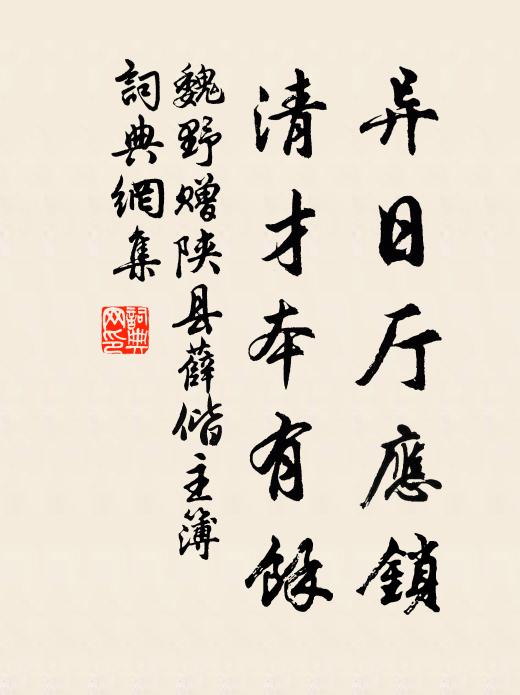 异日厅應鎖
清才本有餘
魏野赠陕县薛偕主簿
詞典網集
詞典网印